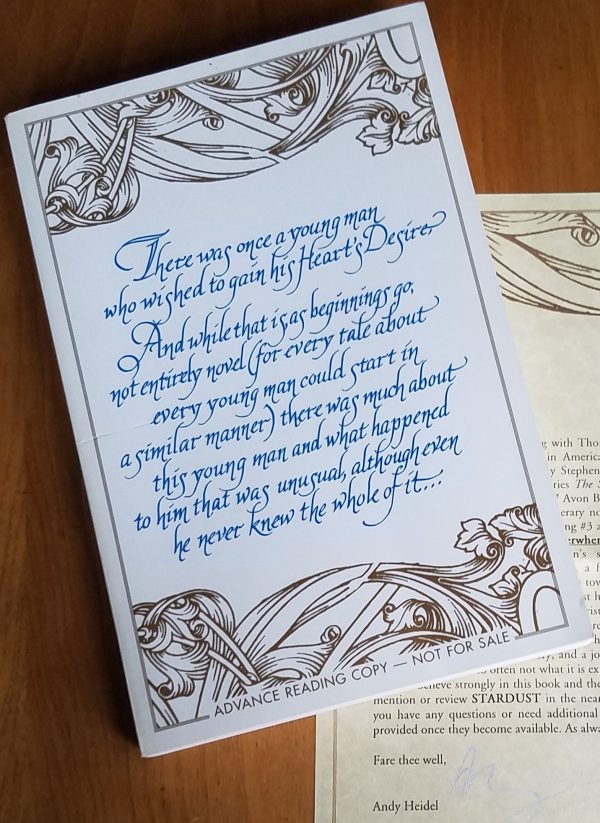 There was once a young man
who wished to gain his Heart's Desire.
And while that is, as beginnings go,
not entirely novel (for every tale about
every young man could start in
a similar manner) there was much about
this young man and what happened
to him that was unusual, although even
he never knew the whole of it...
ADVANCE READING COPY — NOT FOR SALE
with Tho
in America
y Stephen
ries The S
7 Avon B
erary no
ng #3 a
erwher
n's s
a f
tow
st h
rist
re
h
y, and a jo
often not what it is ex
believe strongly in this book and the
mention or review STARDUST in the near
you have any questions or need additional
provided once they become available. As alwa
Fare thee well,
Andy Heidel